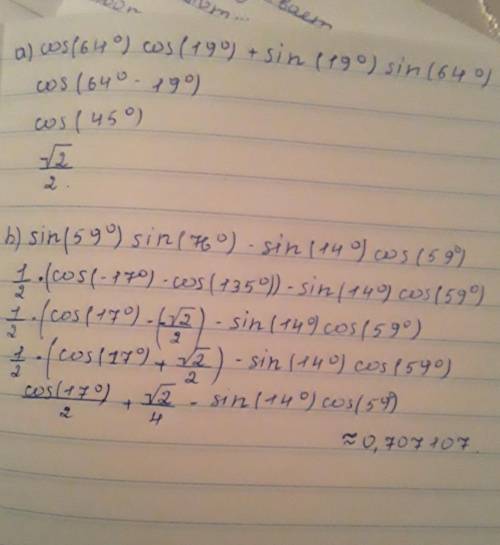 a) cos(64°) cos(19°) + sin(19°) sin(64°)
cos(64° - 19°)
cos(45°)
√2/2.
b) sin(59°) sin(76°) - sin(14°) cos(59°)
1/2 · (cos(-17°) - cos(135°)) - sin(14°) cos(59°)
1/2 · (cos(17°) - (√2/2) - sin(14°) cos(59°)
1/2 · (cos(17°) + √2/2) - sin(14°) cos(59°)
cos(17°)/2 + √2/4 - sin(14°) cos(59°)
≈ 0,707107.